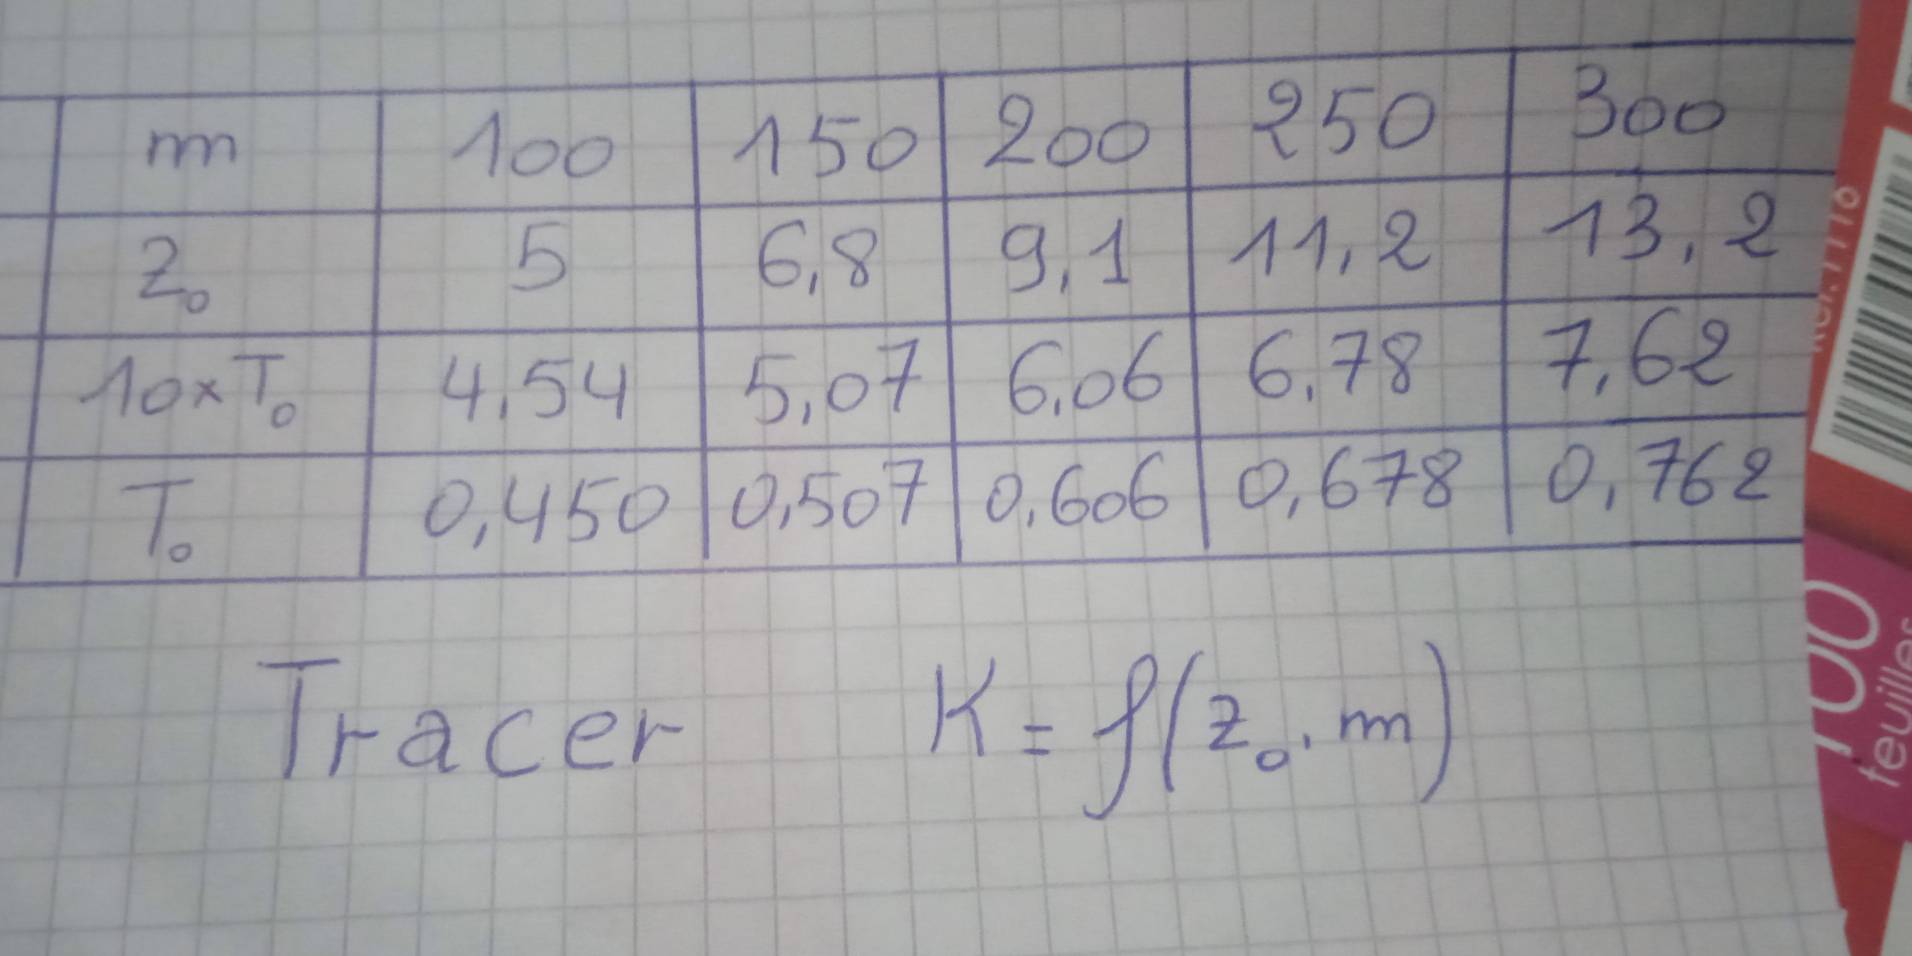 m 100 150 200 250 300
Z₀ 5 6,8 9,1 11,2 13,2
10×T₀ 4,54 5,07 6,06 6,78 7,62
T₀ 0,450 0,507 0,606 0,678 0,762
Tracer K = f(z₀.m)
100
feuilles